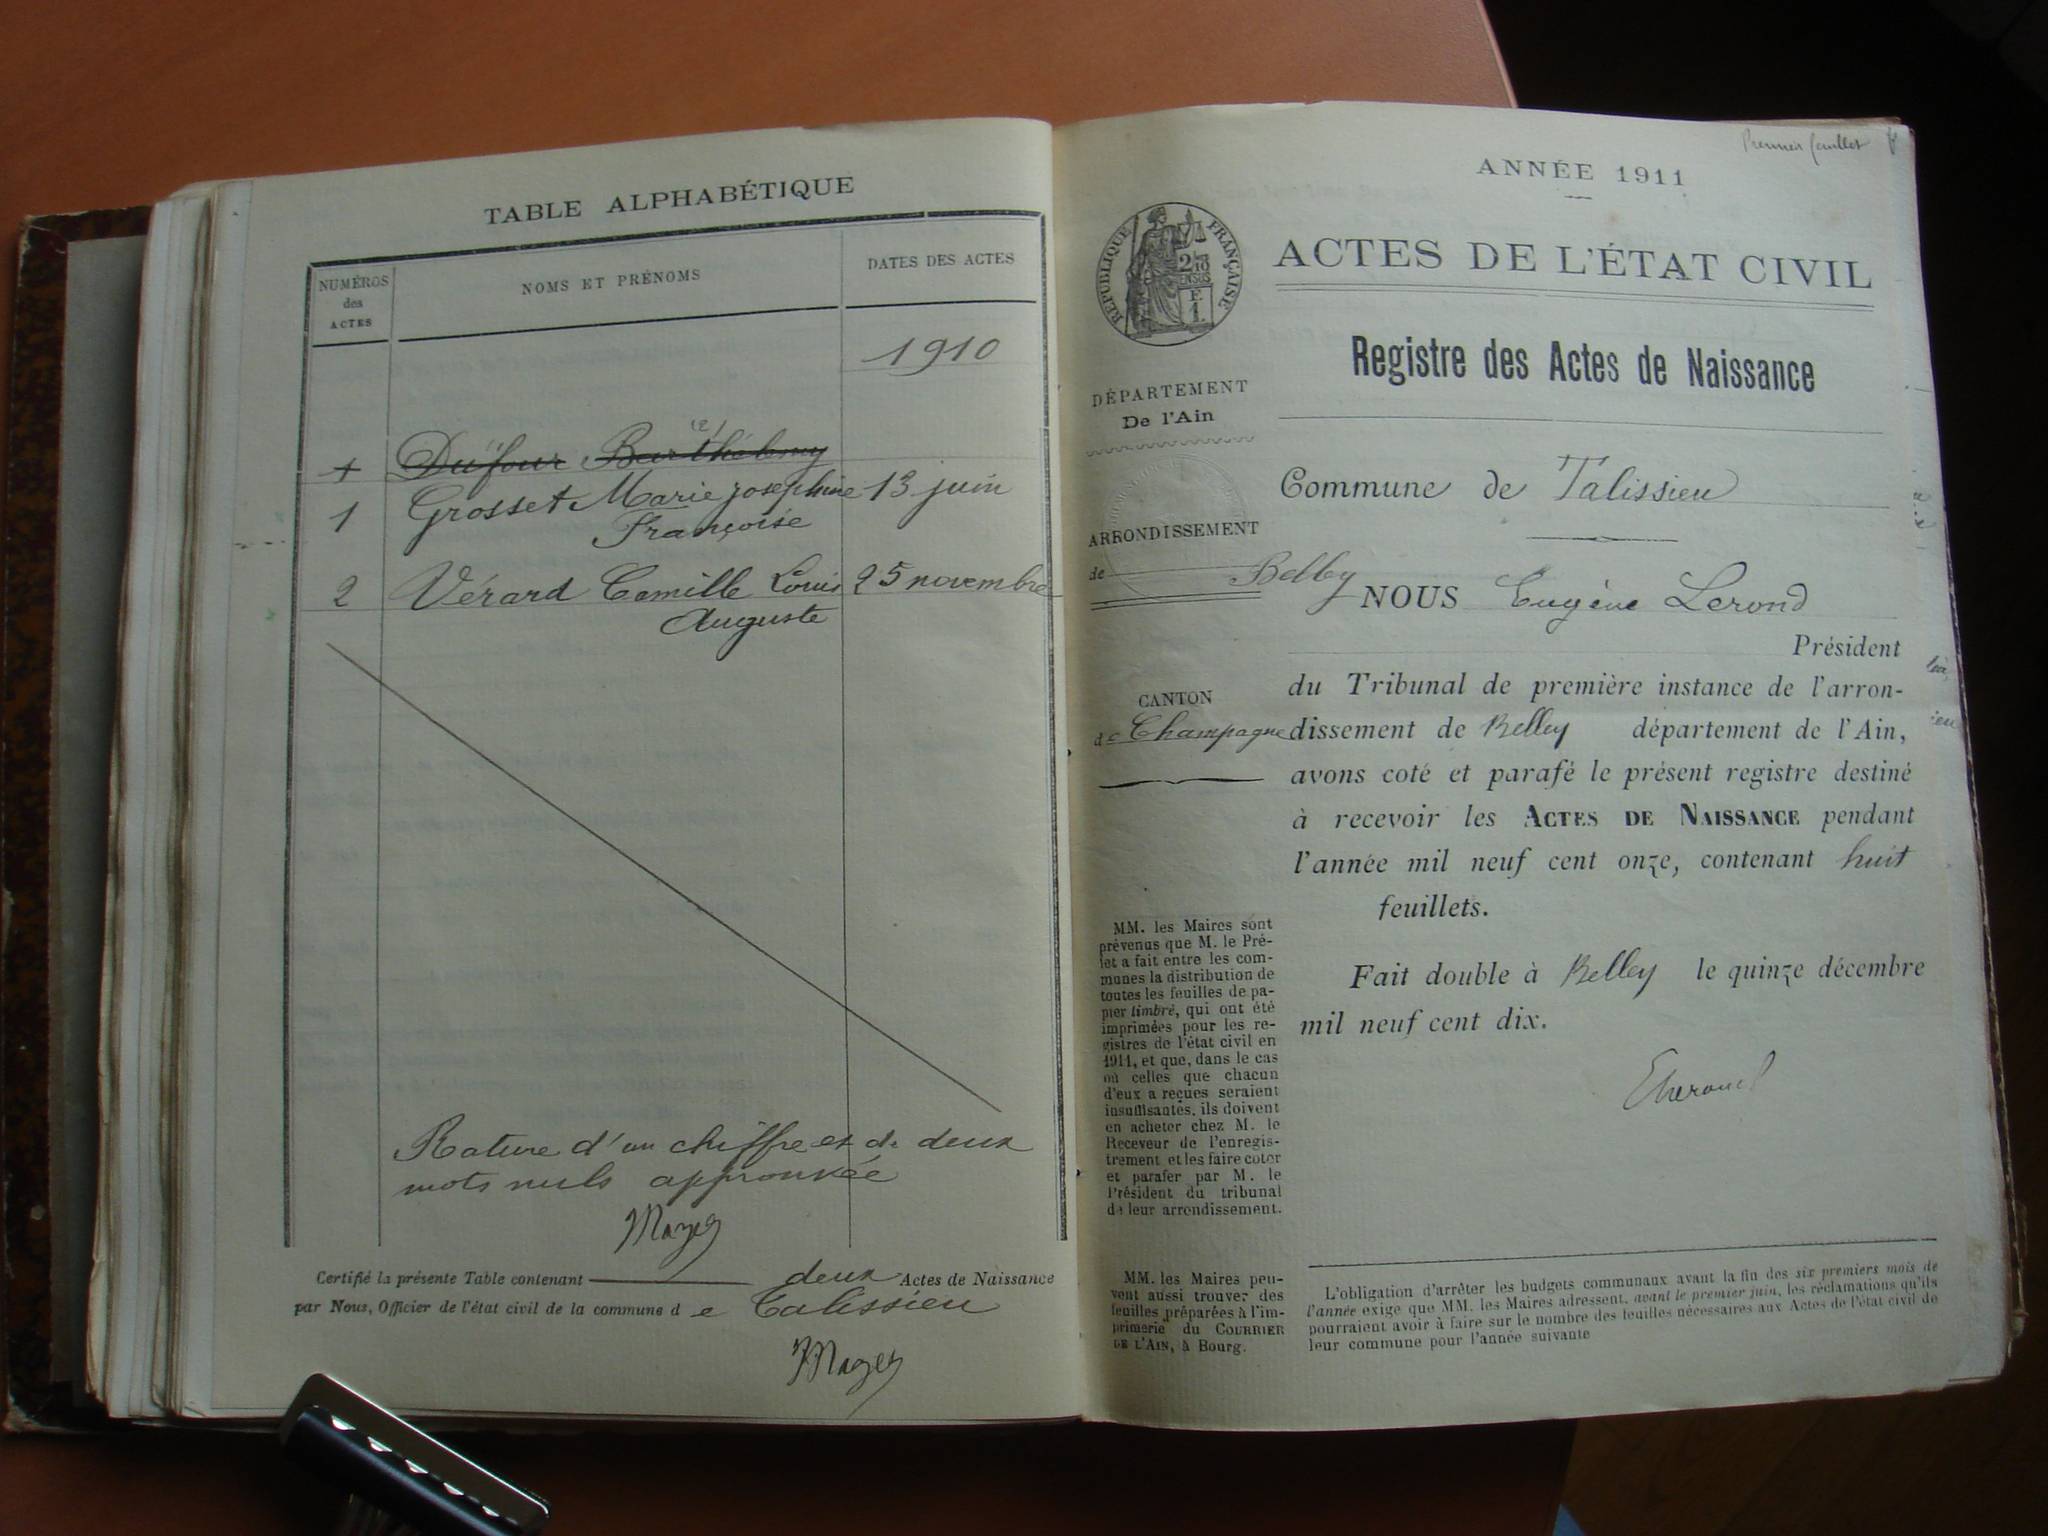 TABLE ALPHABÉTIQUE
NUMÉROS
des
ACTES
NOMS ET PRÉNOMS
DATES DES ACTES
1910
Dufour Barthélemy
1 Grosset Marie Josephine 13 juin
Françoise
2 Vérard Camille Louis 25 novembre
Auguste
Rature d'un chiffre et de deux
mots nuls approuvée
Certifié la présente Table contenant deux Actes de Naissance
par Nous, Officier de l'état civil de la commune de Talissieu
Premier feuillet
ANNÉE 1911
RÉPUBLIQUE FRANÇAISE
ACTES DE L'ÉTAT CIVIL
Registre des Actes de Naissance
DÉPARTEMENT
De l'Ain
Commune de Talissieu
ARRONDISSEMENT
de Belley
NOUS Eugène Lerond
Président
CANTON
de Champagne
du Tribunal de première instance de l'arron-
dissement de Belley département de l'Ain,
avons coté et parafé le présent registre destiné
à recevoir les ACTES DE NAISSANCE pendant
l'année mil neuf cent onze, contenant huit
feuillets.
Fait double à Belley le quinze décembre
mil neuf cent dix.
MM. les Maires sont
prévenus que M. le Pré-
fet a fait entre les com-
munes la distribution de
toutes les feuilles de pa-
pier timbré, qui ont été
imprimées pour les re-
gistres de l'état civil en
1911, et que, dans le cas
où celles que chacun
d'eux a reçues seraient
insuffisantes, ils doivent
en acheter chez M. le
Receveur de l'enregis-
trement et les faire coter
et parafer par M. le
Président du tribunal
de leur arrondissement.
MM. les Maires peu-
vent aussi trouver des
feuilles préparées à l'im-
primerie du COURRIER
DE L'AIN, à Bourg.
L'obligation d'arrêter les budgets communaux avant la fin des six premiers mois de
l'année exige que MM. les Maires adressent, avant le premier juin, les réclamations qu'ils
pourraient avoir à faire sur le nombre des feuilles nécessaires aux Actes de l'état civil de
leur commune pour l'année suivante